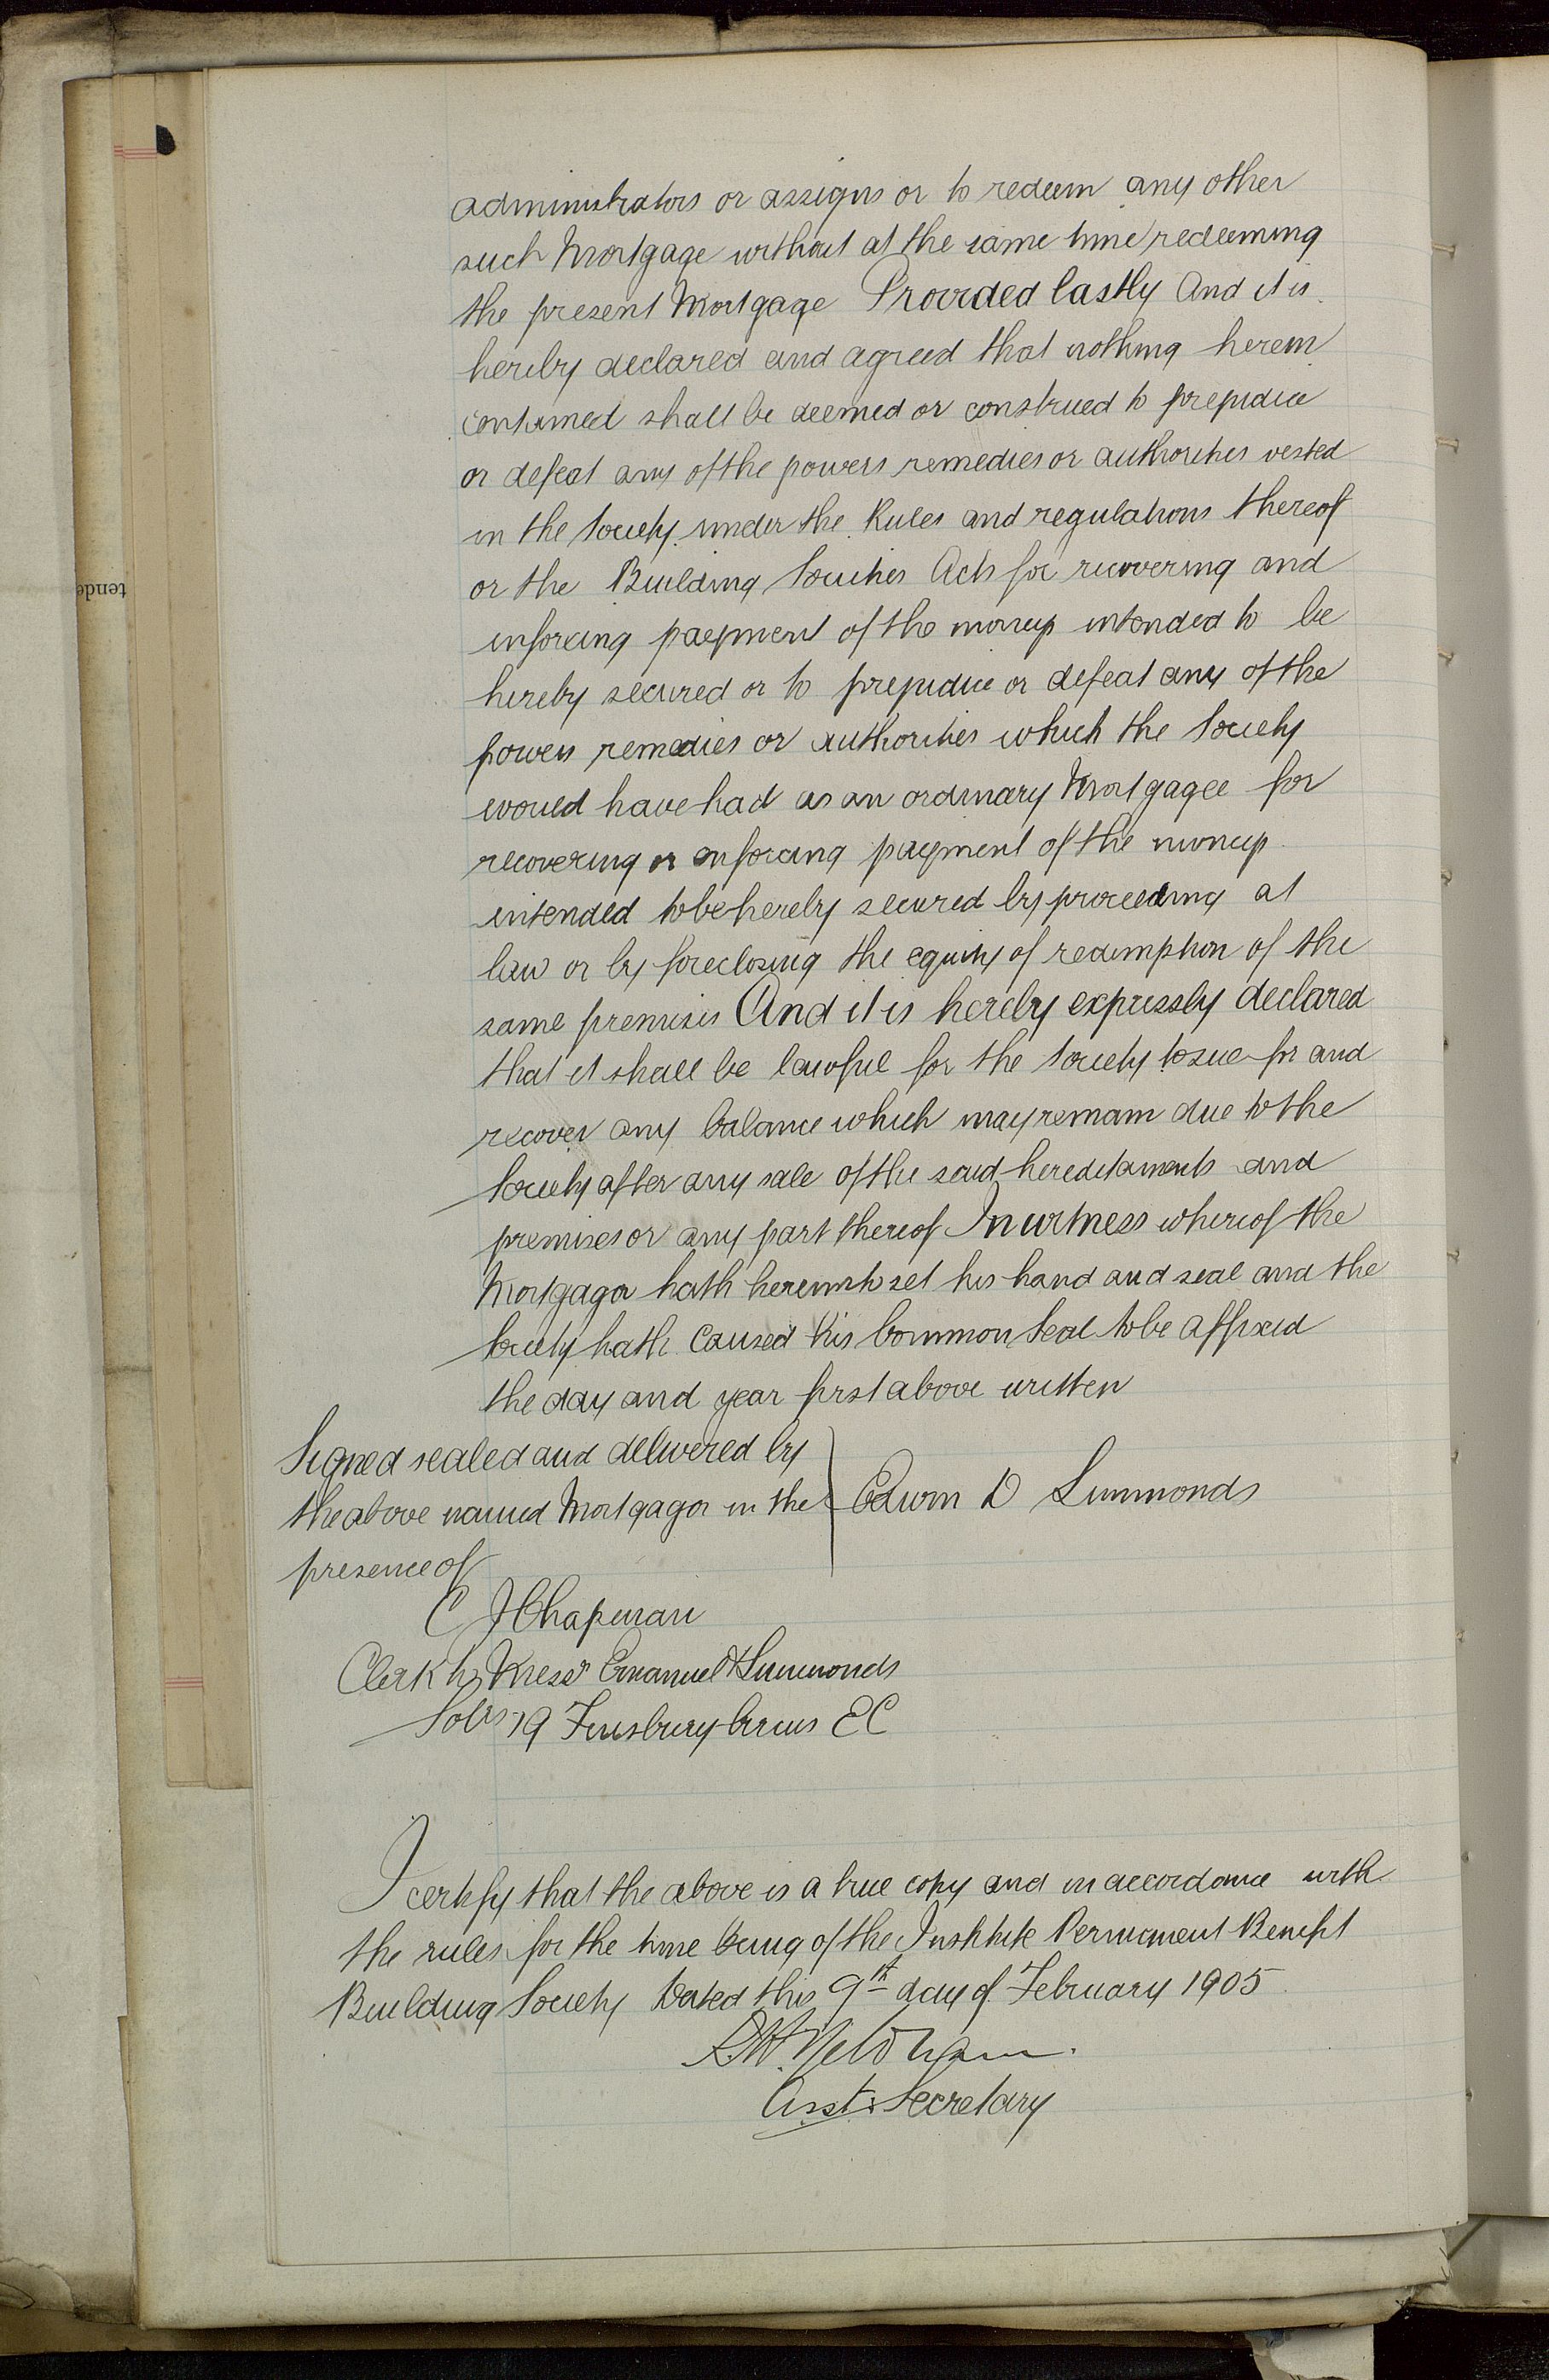 administrators or assigns or to redeem any other
such Mortgage without at the same time redeeming
the present Mortgage Provided lastly And it is
hereby declared and agreed that nothing herein
contained shall be deemed or construed to prejudice
or defeat any of the powers remedies or authorities vested
in the Society under the Rules and regulations thereof
or the Building Societies Acts for recovering and
inforcing payment of the money intended to be
hereby secured or to prejudice or defeat any of the
powers remedies or authorities which the Society
would have had as an ordinary Mortgagee for
recovering or enforcing payment of the money
intended to be hereby secured by proceeding at
law or by foreclosing the equity of redemption of the
same premises And it is hereby expressly declared
that it shall be lawful for the Society to sue for and
recover any balance which may remain due to the
Society after any sale of the said hereditaments and
premises or any part thereof In witness whereof the
Mortgagor hath hereunto set his hand and seal and the
Society hath caused his Common Seal to be affixed
the day and year first above written
Signed sealed and delivered by
the above named Mortgagor in the Edwin D Simmonds
presence of
C J Chapman
Clerk to Messrs Emanuel & Simmonds
Solrs 19 Finsbury Circus EC
I certify that the above is a true copy and in accordance with
the rules for the time being of the Institute Permanent Benefit
Building Society Dated this 9th day of February 1905
Asst. Secretary
tende